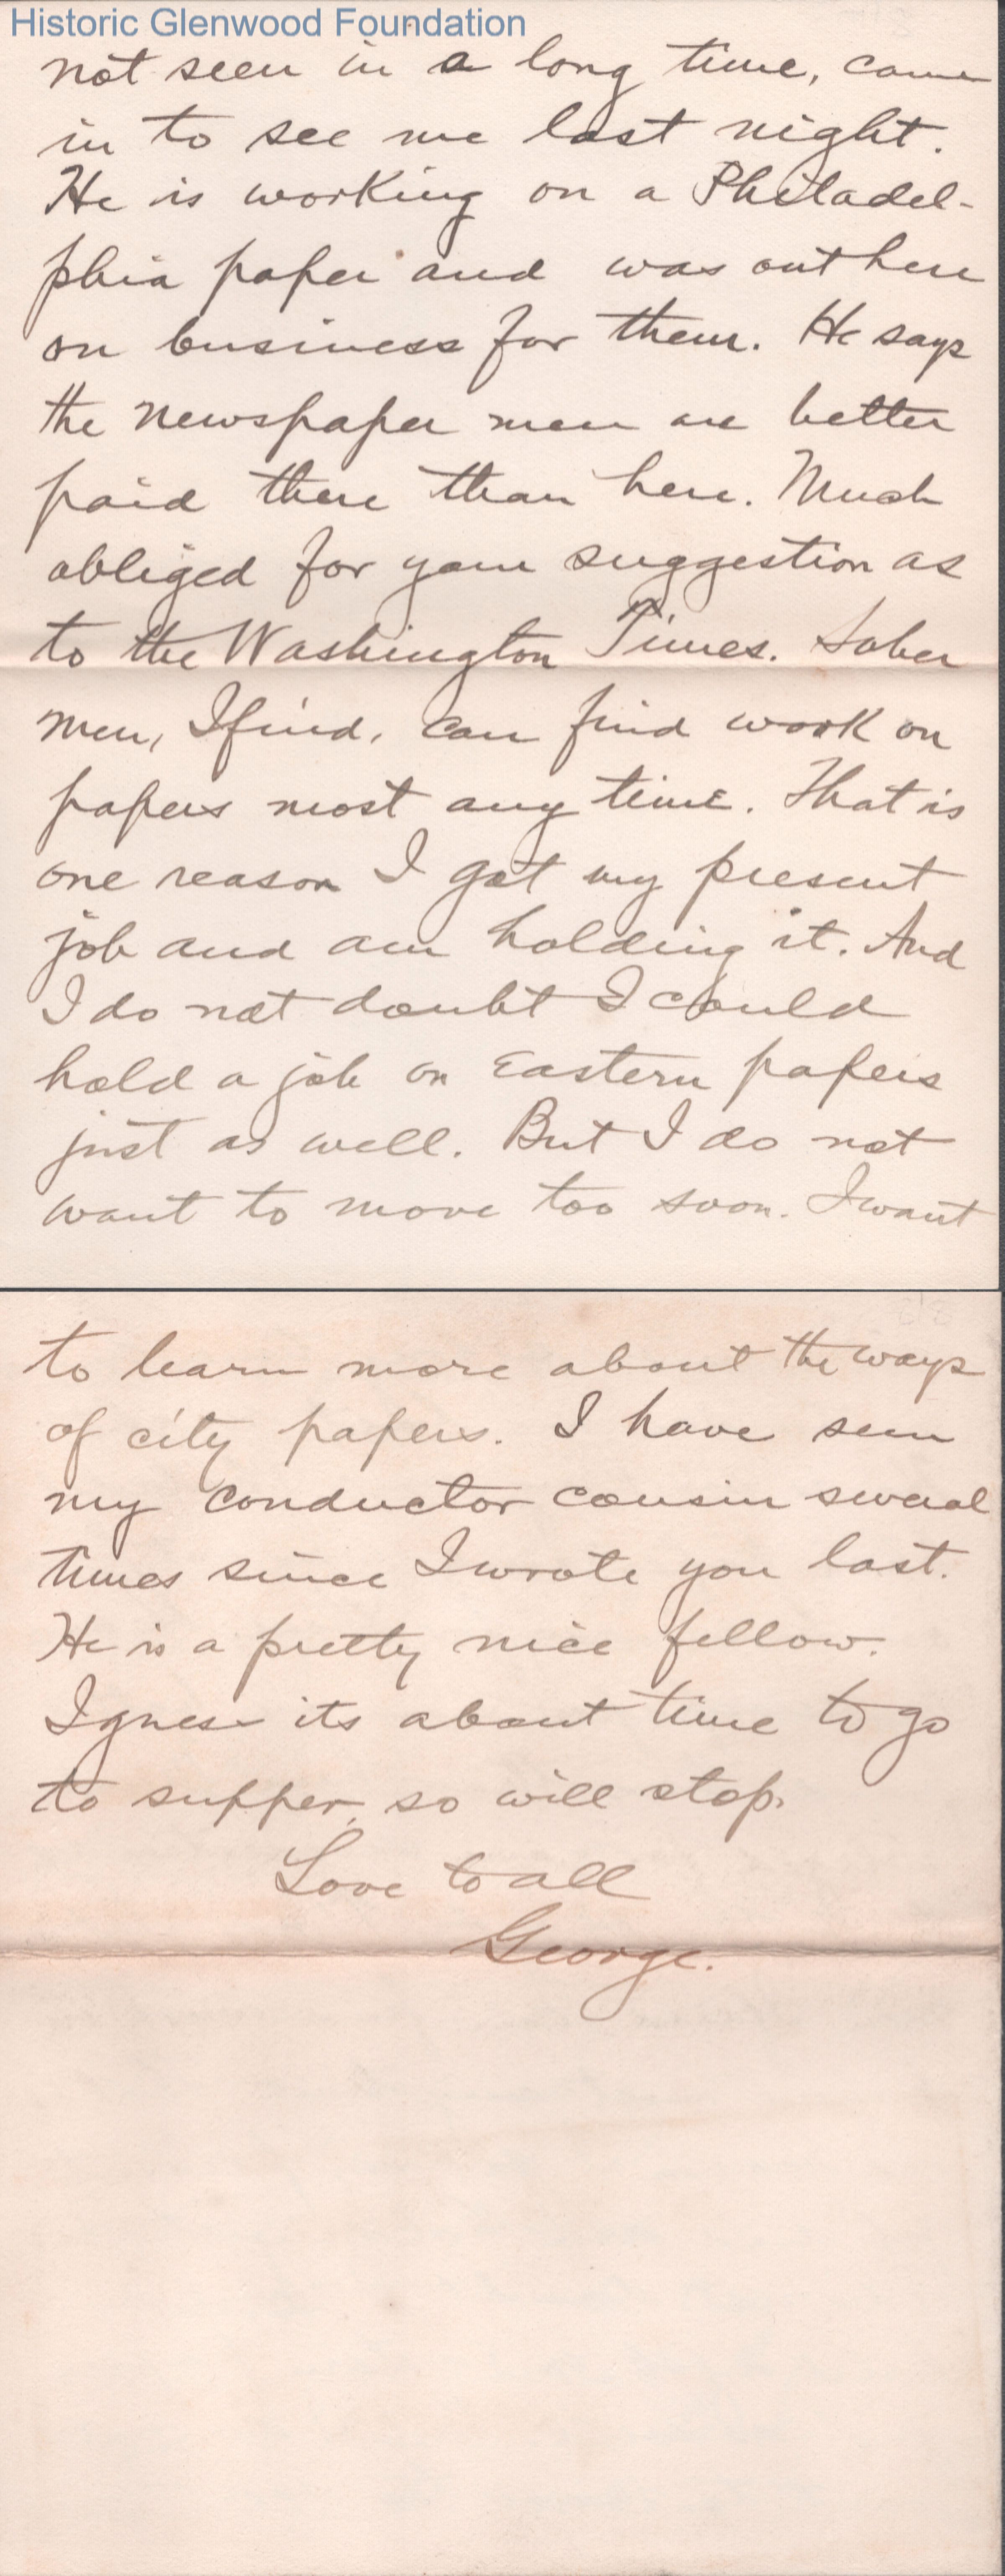 Historic Glenwood Foundation
not seen in a long time, came
in to see me last night.
He is working on a Philadel-
phia paper and was out here
on business for them. He says
the newspaper men are better
paid there than here. Much
obliged for your suggestion as
to the Washington Times. Sober
men, I find, can find work on
papers most any time. That is
one reason I got my present
job and am holding it. And
I do not doubt I could
hold a job on Eastern papers
just as well. But I do not
want to move too soon. I want
to learn more about the ways
of city papers. I have seen
my conductor cousin several
times since I wrote you last.
He is a pretty nice fellow.
I guess its about time to go
to supper, so will stop.
Love to all
George.